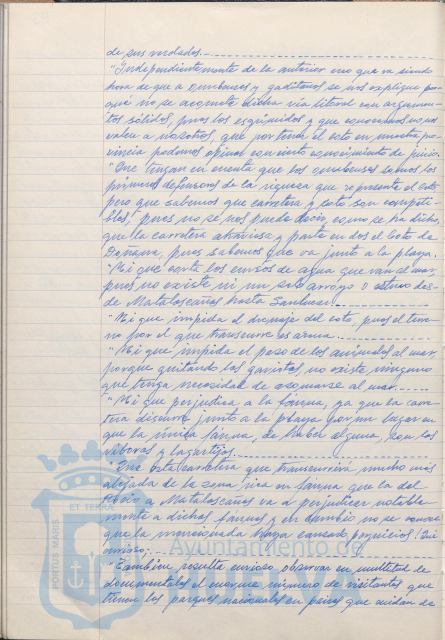 de sus vocales.
"Independientemente de la anterior creo que va siendo
hora de que a onubenses y gaditanos se nos explique por
qué no se acomete dicha vía litoral con argumen-
tos sólidos, pues los esgrimidos y que conocemos no nos
valen a nosotros, que por tener el coto en nuestra pro-
vincia podemos opinar con cierto conocimiento de juicio.
"Que tengan en cuenta que los onubenses somos los
primeros defensores de la riqueza que representa el coto
pero que sabemos que carretera y coto son compati-
bles, pues no se nos puede decir, como se ha dicho,
que la carretera atraviesa y parte en dos el Coto de
Doñana, pues sabemos que va junto a la playa.
"Ni que corte los cursos de agua que van al mar,
pues no existe ni un solo arroyo o estero des-
de Matalascañas hasta Sanlúcar.
"Ni que impida el drenaje del coto, pues el terre-
no por el que transcurre es arena.
"Ni que impida el paso de los animales al mar,
porque quitando las gaviotas, no existe ninguno
que tenga necesidad de asomarse al mar.
"Ni que perjudica a la fauna, ya que la carre-
tera discurre junto a la playa por un lugar en
que la única fauna, de haber alguna, son las
víboras y lagartijos.
"Que esta carretera que transcurrirá mucho más
alejada de la zona rica en fauna que la del
Rocío a Matalascañas va a perjudicar notable-
mente a dichas faunas y en cambio no se conoce
que la mencionada haya causado perjuicios! Qué
curioso;
"También resulta curioso observar en multitud de
documentales el enorme número de visitantes que
tienen los parques nacionales en países que cuidan de
PORTUS MARIS
ET TERRÆ
Ayuntamiento de
HUELVA